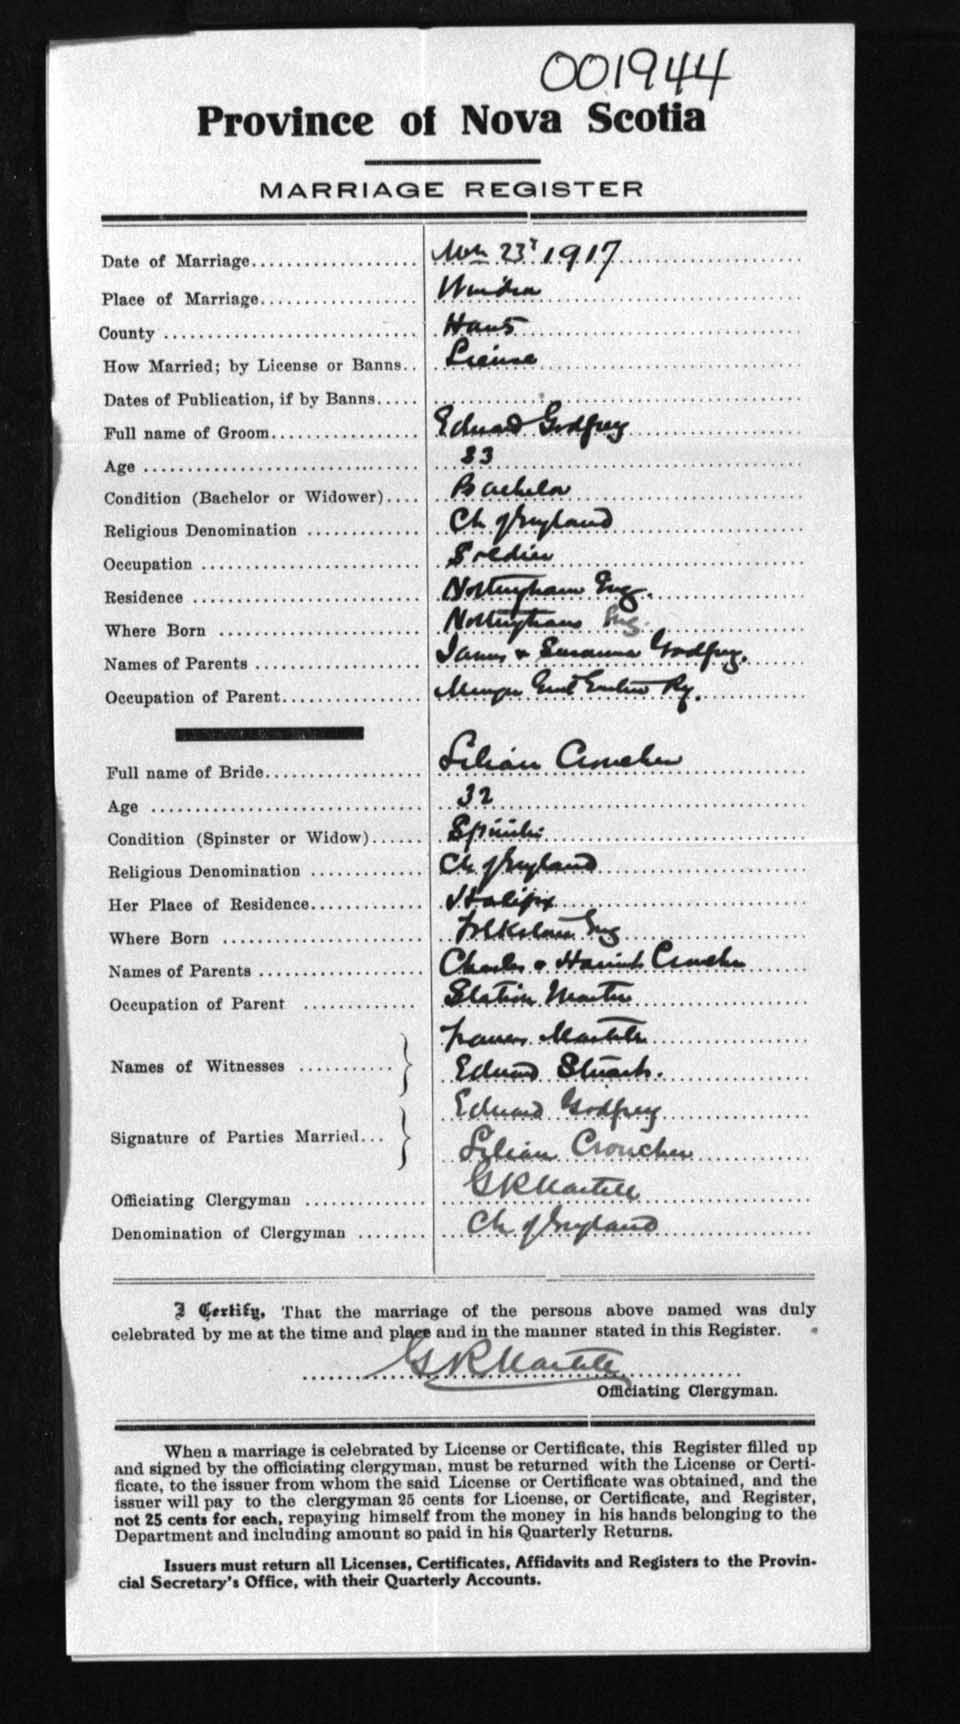 001944
Province of Nova Scotia
MARRIAGE REGISTER
Date of Marriage 23 1917
Place of Marriage Windsor
County Hants
How Married; by License or Banns License
Dates of Publication, if by Banns
Full name of Groom Edward Godfrey
Age 33
Condition (Bachelor or Widower) Bachelor
Religious Denomination Ch of England
Occupation Soldier
Residence Nottingham Eng.
Where Born Nottingham Eng.
Names of Parents James & Susanna Godfrey.
Occupation of Parent Ry.
Full name of Bride Lilian Croucher
Age 32
Condition (Spinster or Widow) Spinster
Religious Denomination Ch of England
Her Place of Residence Halifax
Where Born Folkstone Eng
Names of Parents Charles & Harriet Croucher
Occupation of Parent Station Master
Frances Martell
Names of Witnesses
Edward Stuart.
Edward Godfrey
Signature of Parties Married
Lilian Croucher
Officiating Clergyman G R Martell
Denomination of Clergyman Ch of England
I Certify, That the marriage of the persons above named was duly
celebrated by me at the time and place and in the manner stated in this Register.
G R Martell
Officiating Clergyman.
When a marriage is celebrated by License or Certificate, this Register filled up
and signed by the officiating clergyman, must be returned with the License or Certi-
ficate, to the issuer from whom the said License or Certificate was obtained, and the
issuer will pay to the clergyman 25 cents for License, or Certificate, and Register,
not 25 cents for each, repaying himself from the money in his hands belonging to the
Department and including amount so paid in his Quarterly Returns.
Issuers must return all Licenses, Certificates, Affidavits and Registers to the Provin-
cial Secretary's Office, with their Quarterly Accounts.